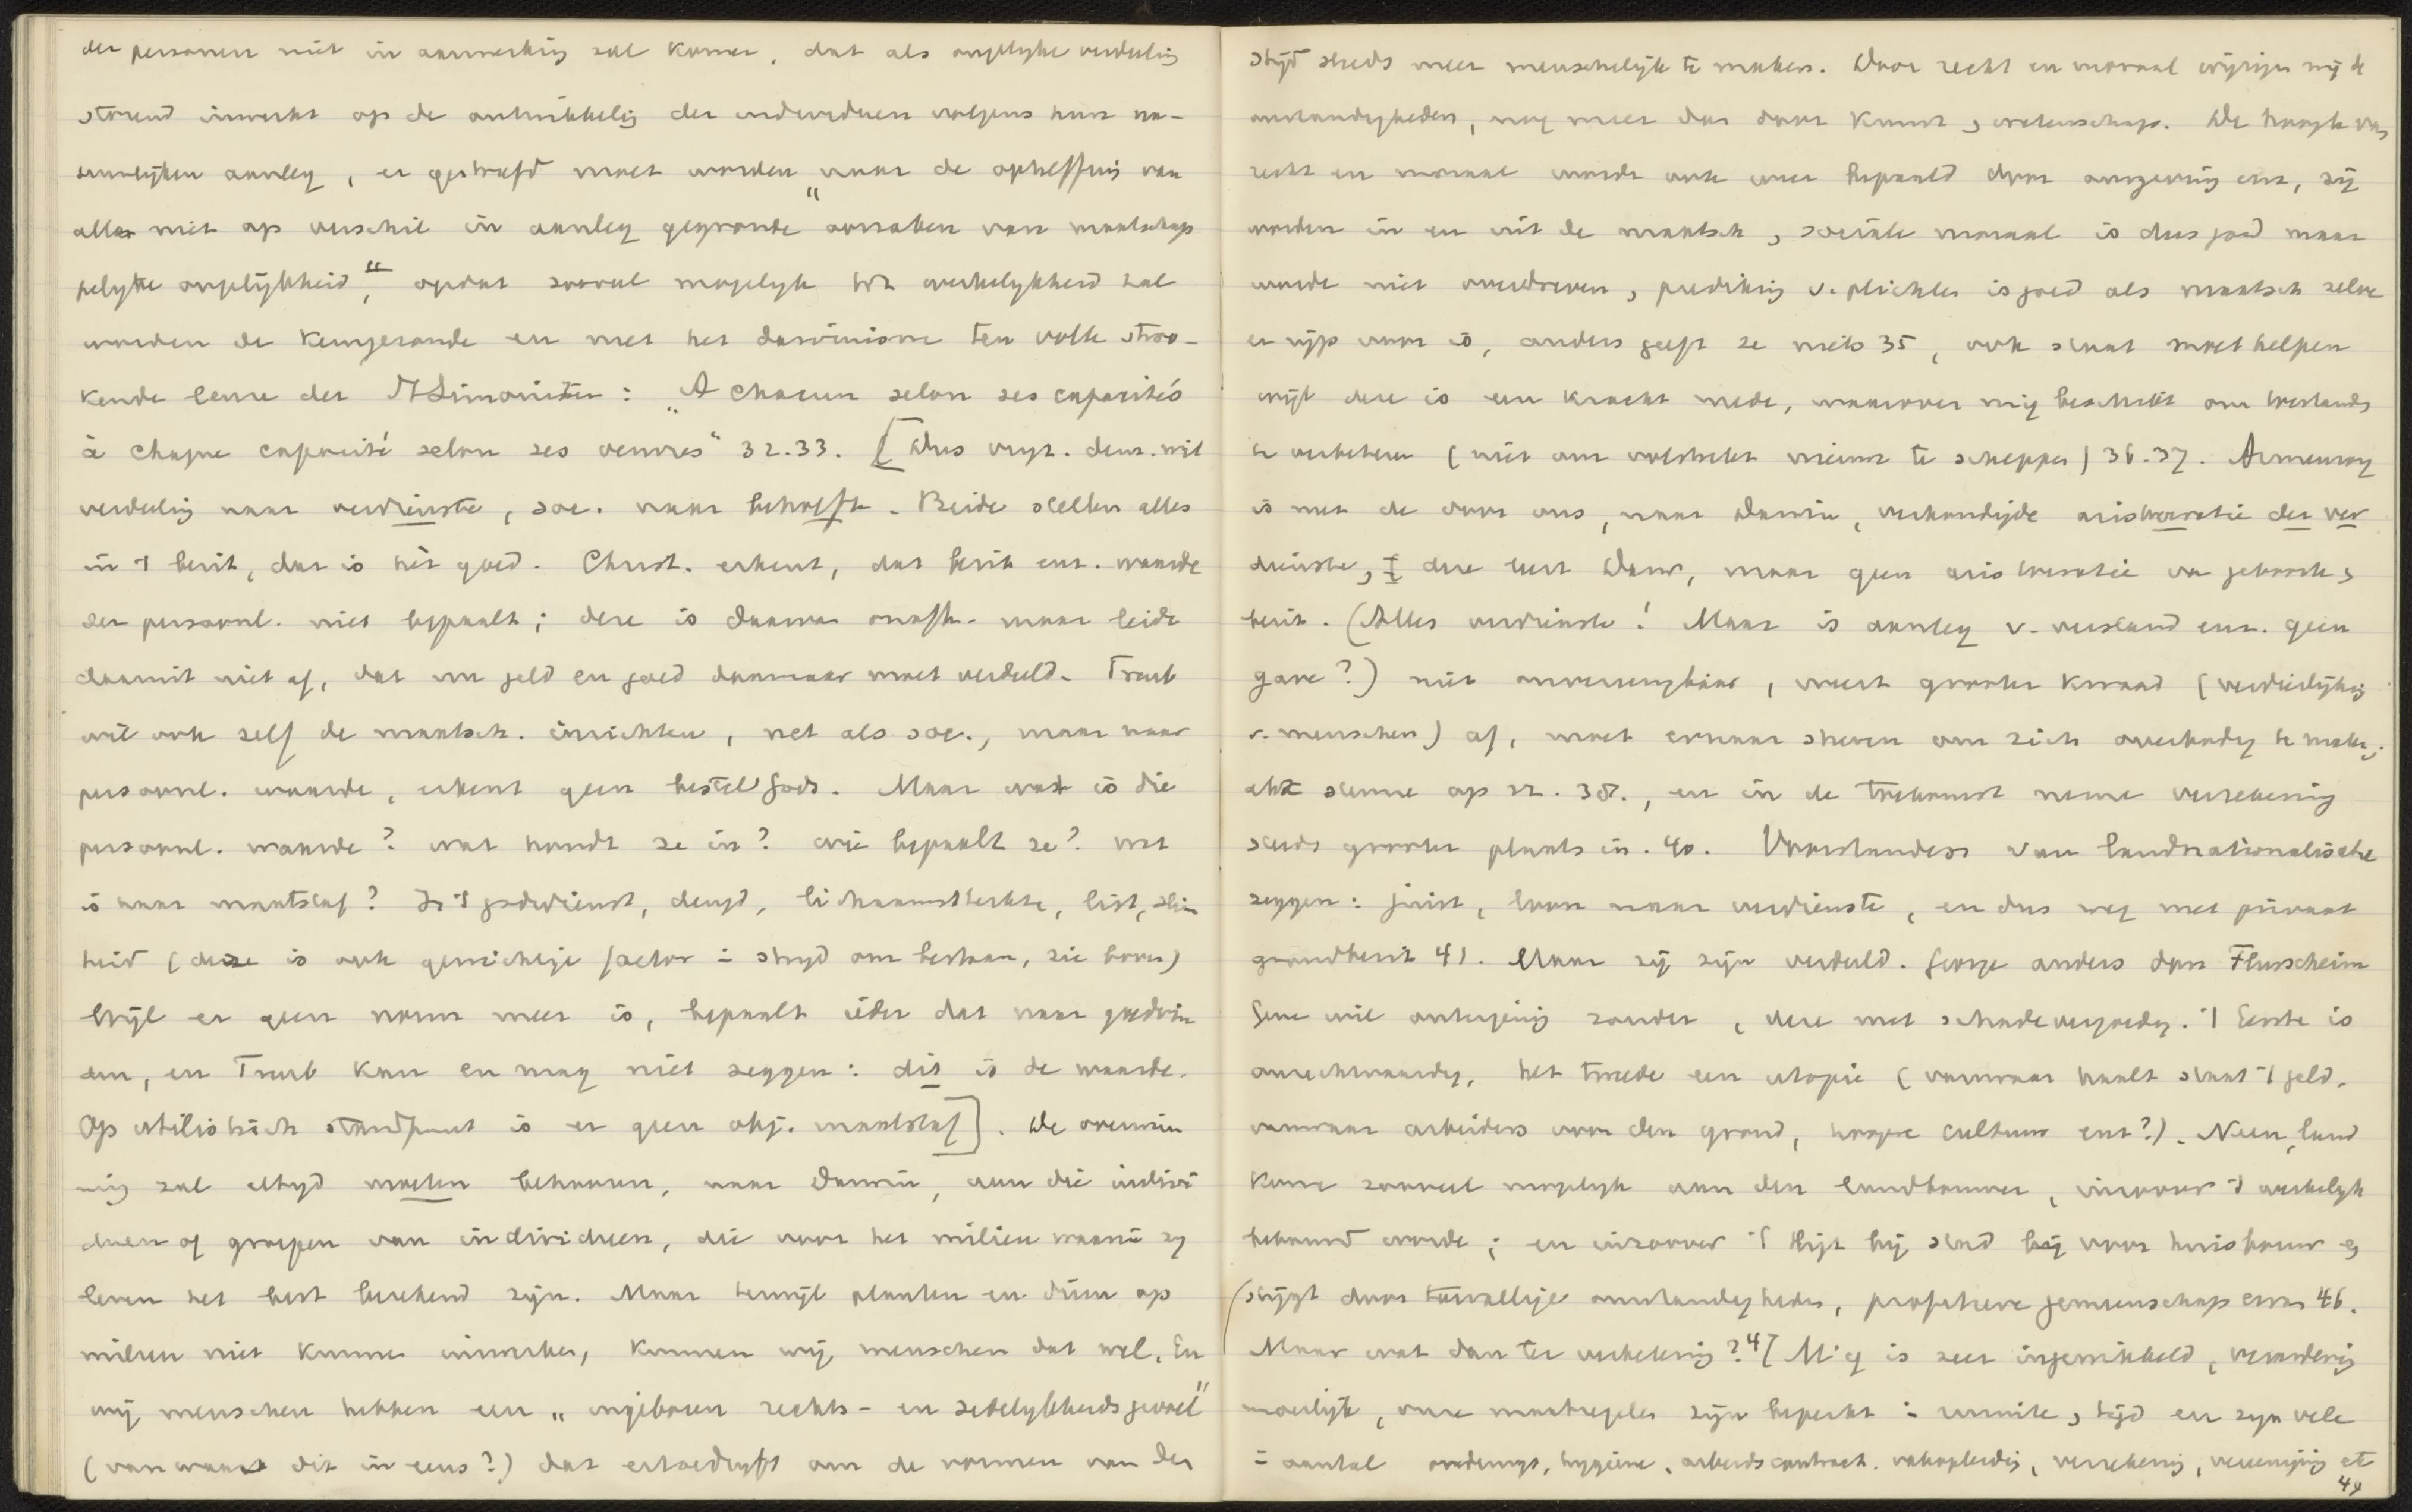 der personen niet in aanmerking zal komen, dat als ongelyke verdeeling
storend inwerkt op de ontwikkelig der individuen volgens hun na-
tuurlijken aanleg, er gestreefd moet worden „naar de opheffing van
alle niet op verschil in aanleg gegronde oorzaken van maatschap
pelyke ongelijkheid", opdat zooveel mogelyk tot werkelykheid zal
worden de kerngezonde en met het darwinisme ten volle stroo-
kende leuze der St Simonisten: „A chacun selon ses capacités
à chaque capacité selon ses oeuvres" 32.33. [Dus vryz. dem. wil
verdeelig naar verdienste, soc. naar behoefte. Beide stellen alles
in 't bezit, dat is het goed. Christ. erkent, dat bezit enz. waarde
der persoonl. niet bepaalt; deze is daarvan onafh. maar leidt
daaruit niet af, dat nu geld en goed daarnaar moet verdeeld. Treub
wil ook zelf de maatsch. inrichten, net als soc., maar naar
persoonl. waarde, erkent geen bestel Gods. Maar wat is die
persoonl. waarde? wat houdt ze in? wie bepaalt ze? wat
is haar maatstaf? Is 't godsdienst, deugd, lichaamssterkte, list, slim
heid (deze is ook gewichtige factor i strijd om bestaan, zie boven)
Wijl er geen norm meer is, bepaalt ieder dat naar goedvin
den, en Treub kan en mag niet zeggen: dit is de waarde.
Op utilistisch standpunt is er geen obj. maatstaf]. De overwin
nig zal altyd moeten behooren, naar Darwin, aan die indivi
duen of groepen van individuen, die voor het milieu waarin zy
leven het best berekend zijn. Maar terwijl planten en dieren op
milieu niet kunnen inwerken, kunnen wij menschen dat wel. En
wij menschen hebben een „aangeboren rechts- en zedelykheidsgevoel"
(van waar dit in eens?) dat ertoe dryft om de vormen van den
strijd steeds meer menschelijk te maken. Door recht en moraal wijzigen wij de
omstandigheden, nog meer dan door kunst, wetenschap. De hoogte van
recht en moraal worde ook weer bepaald door omgeving enz, zij
worden in en uit de maatsch, sociale moraal is dus goed maar
worde niet overdreven, prediking v. plichten is goed als maatsch zelve
er rijp voor is, anders geeft ze niets 35, ook staat moet helpen
wijl deze is een kracht mede, waarover wij beschikk om toestands
te verbeteren (niet om volstrekt nieuws te scheppen) 36.37. Armenzorg
is met de door ons, naar Darwin, verkondigde aristocratie der ver
dienste, deze eert Darw, maar geen aristocratie van geboorte,
bezit. (Alles verdienste! Maar is aanleg v. verstand enz. geen
gave?) niet onvereenigbaar, weert grooter kwaad (verdierlijking
v. menschen) af, moet ernaar streven om zich overbodig te maken,
elk steune op zz. 38., en in de toekomst neme verzekering
steeds grooter plaats in. 40. Voorstanders van landnationalisatie
zeggen: juist, loon naar verdienste, en dus weg met privaat
grondbezit 41. Maar zij zijn verdeeld. George anders dan Flurscheim
Gene wil onteigening zonder, deze met schadevergoedg. 't Eerste is
onrechtvaardig, het tweede een utopie (vanwaar haalt staat 't geld,
vanwaar arbeiders voor den grond, hooge cultuur enz?). Neen, land
kome zooveel mogelyk aan den landbouwer, inzoover 't werkelyk
bebouwd worde; en inzoover 't ligt bij stad bij voor huisbouw en
(stygt door toevallige omstandigheden, profiteere gemeenschap ervan 46.
Maar wat dan ter verbetering? 47 M'ij is zeer ingewikkeld, verandering
moeilijk, onze maatregelen zijn beperkt i ruimte, tijd en zyn vele
i aantal onderwys, hygiene, arbeidscontract, vakopleidig, verzekering, vereeniging etc
49